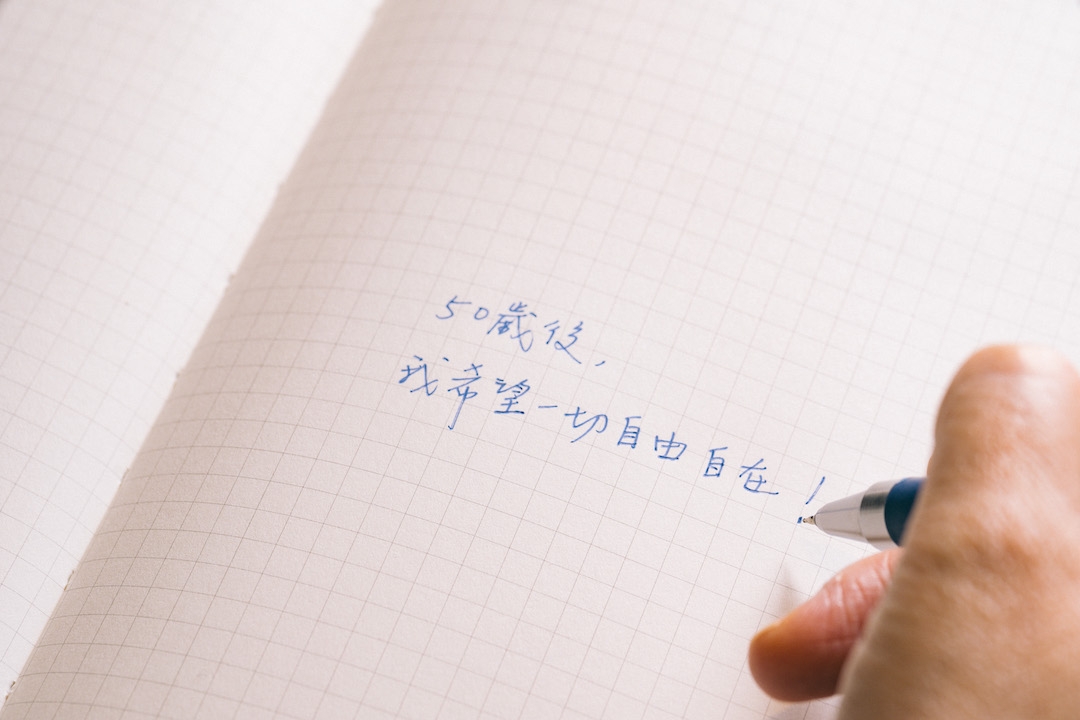 50歲後,
我希望一切自由自在!